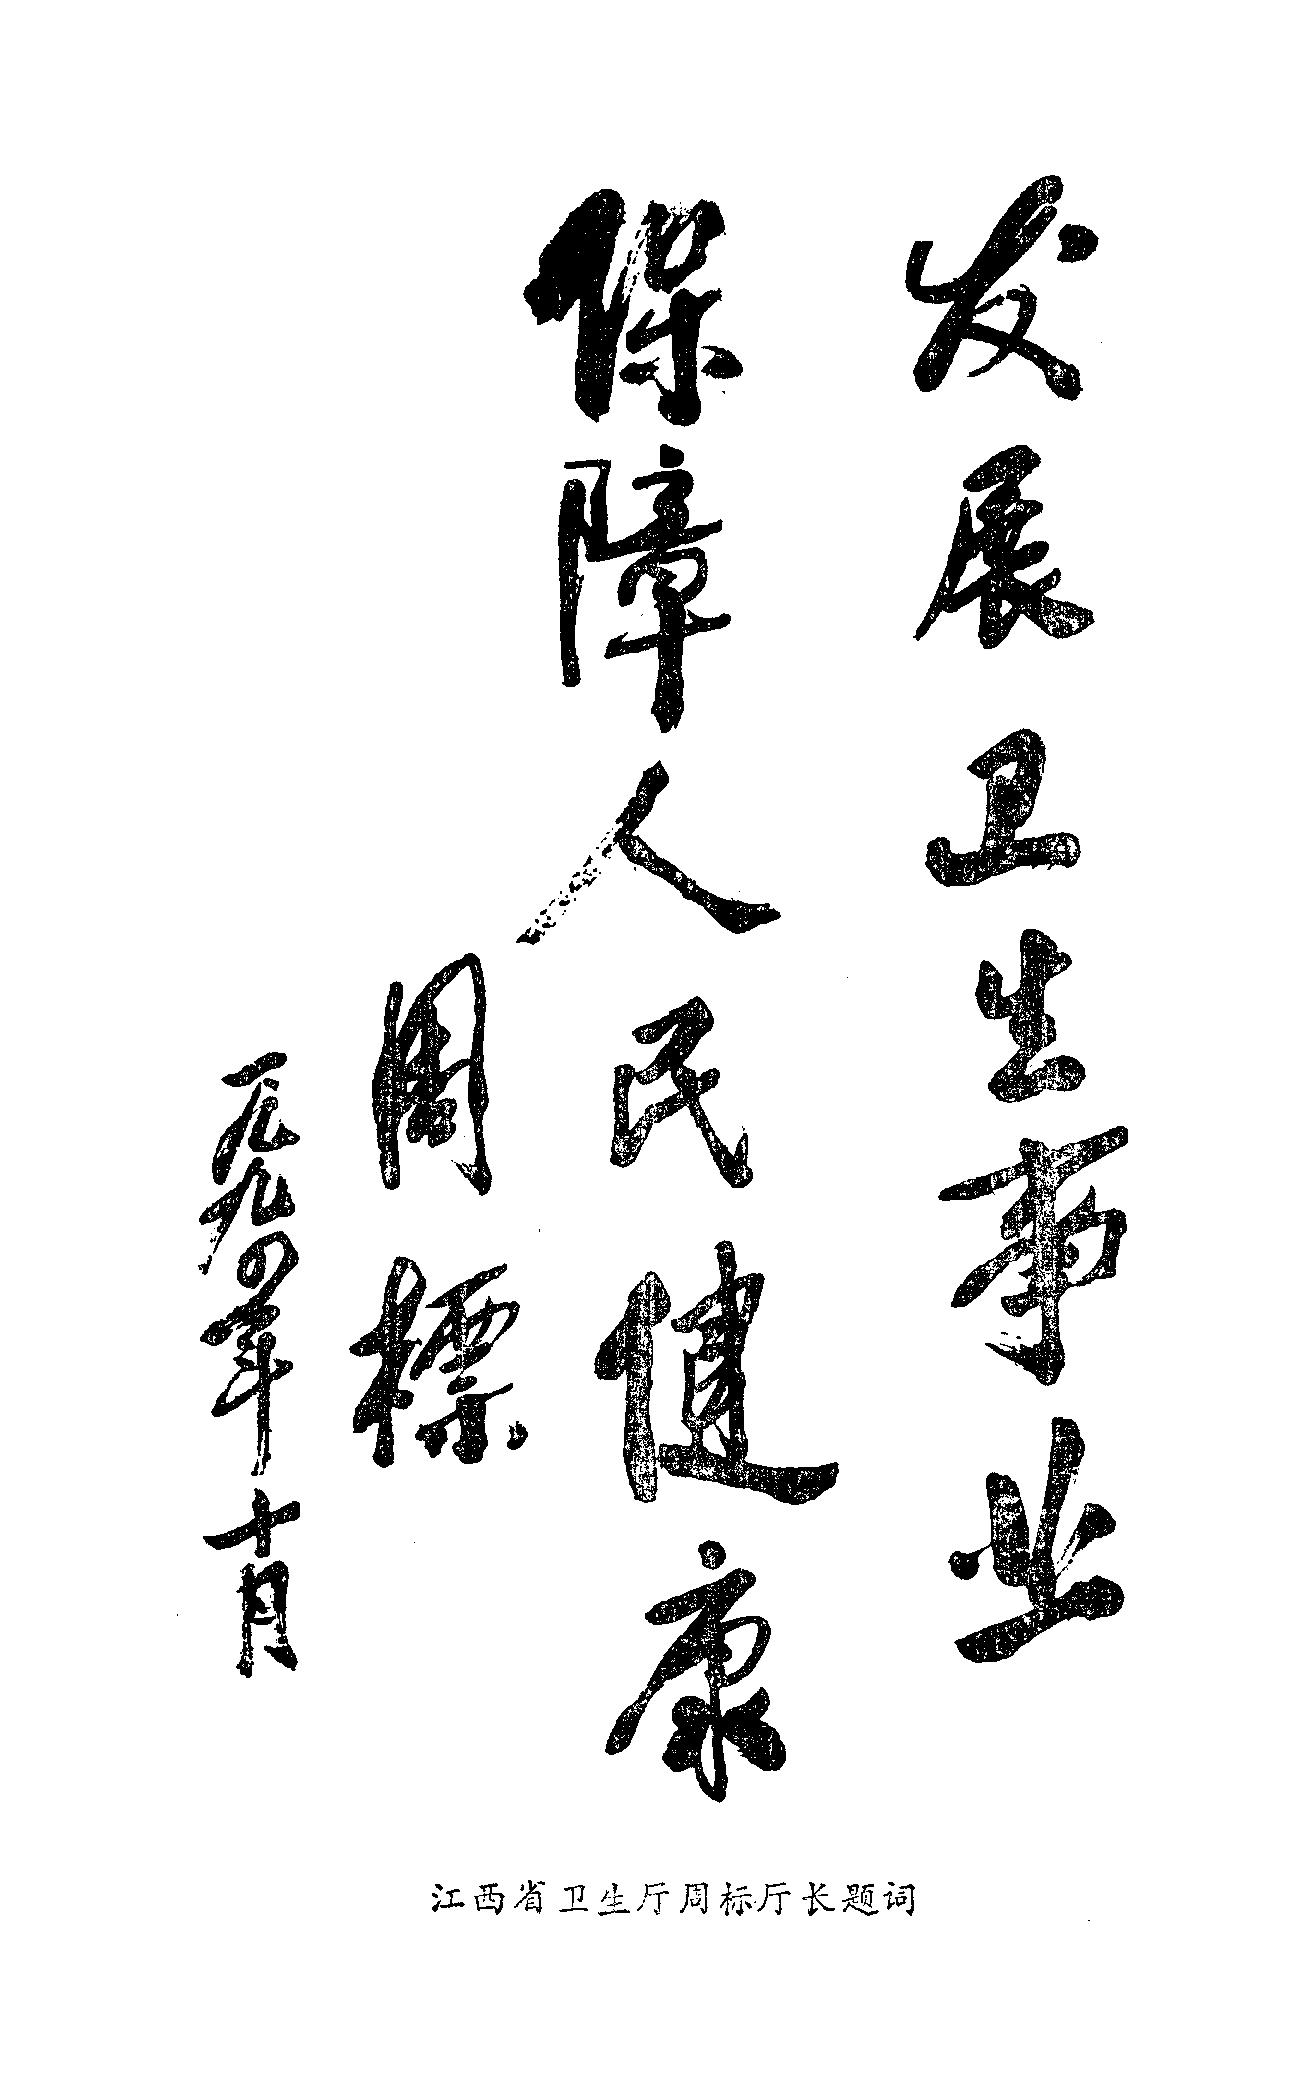 发展卫生事业
保障人民健康
周標
一九九〇年十月
江西省卫生厅周标厅长题词